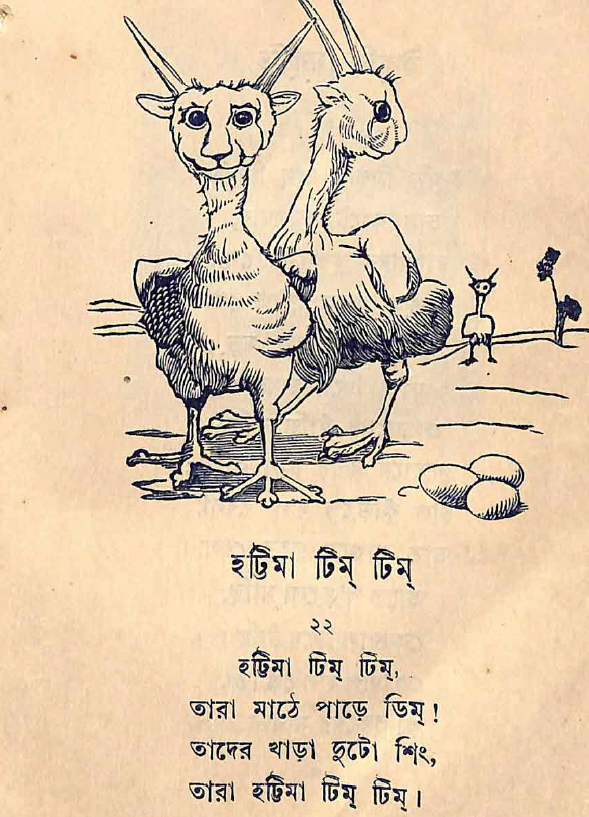 হট্টিমা টিম্ টিম্
২২
হট্টিমা টিম্ টিম্,
তারা মাঠে পাড়ে ডিম্!
তাদের খাড়া দুটো শিং,
তারা হট্টিমা টিম্ টিম্।